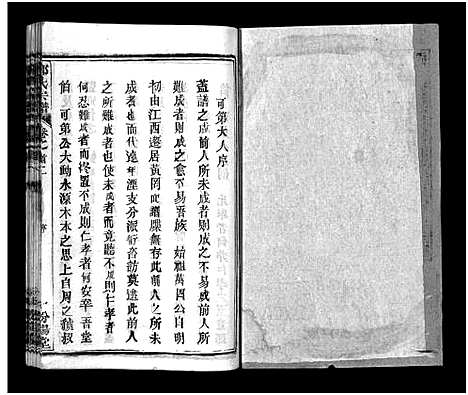 可第大人序
蓋譜之成前人所未成者則成之不易成前人所
難成者則成之愈不易吾族 始祖萬四公自明
初由江西遷居黃冈一切譜牒無存此前人之所未
成者也而代年湮支分派衍咨訪莫逮此前人
之所難成者也使未成而竟聽不成則仁孝者
何忍難成者而終置不成則仁孝者何安辛吾堂
伯 可第公大動水源木本之思上自周之虢叔
氏宗譜 卷之首二 序 一 汾陽堂